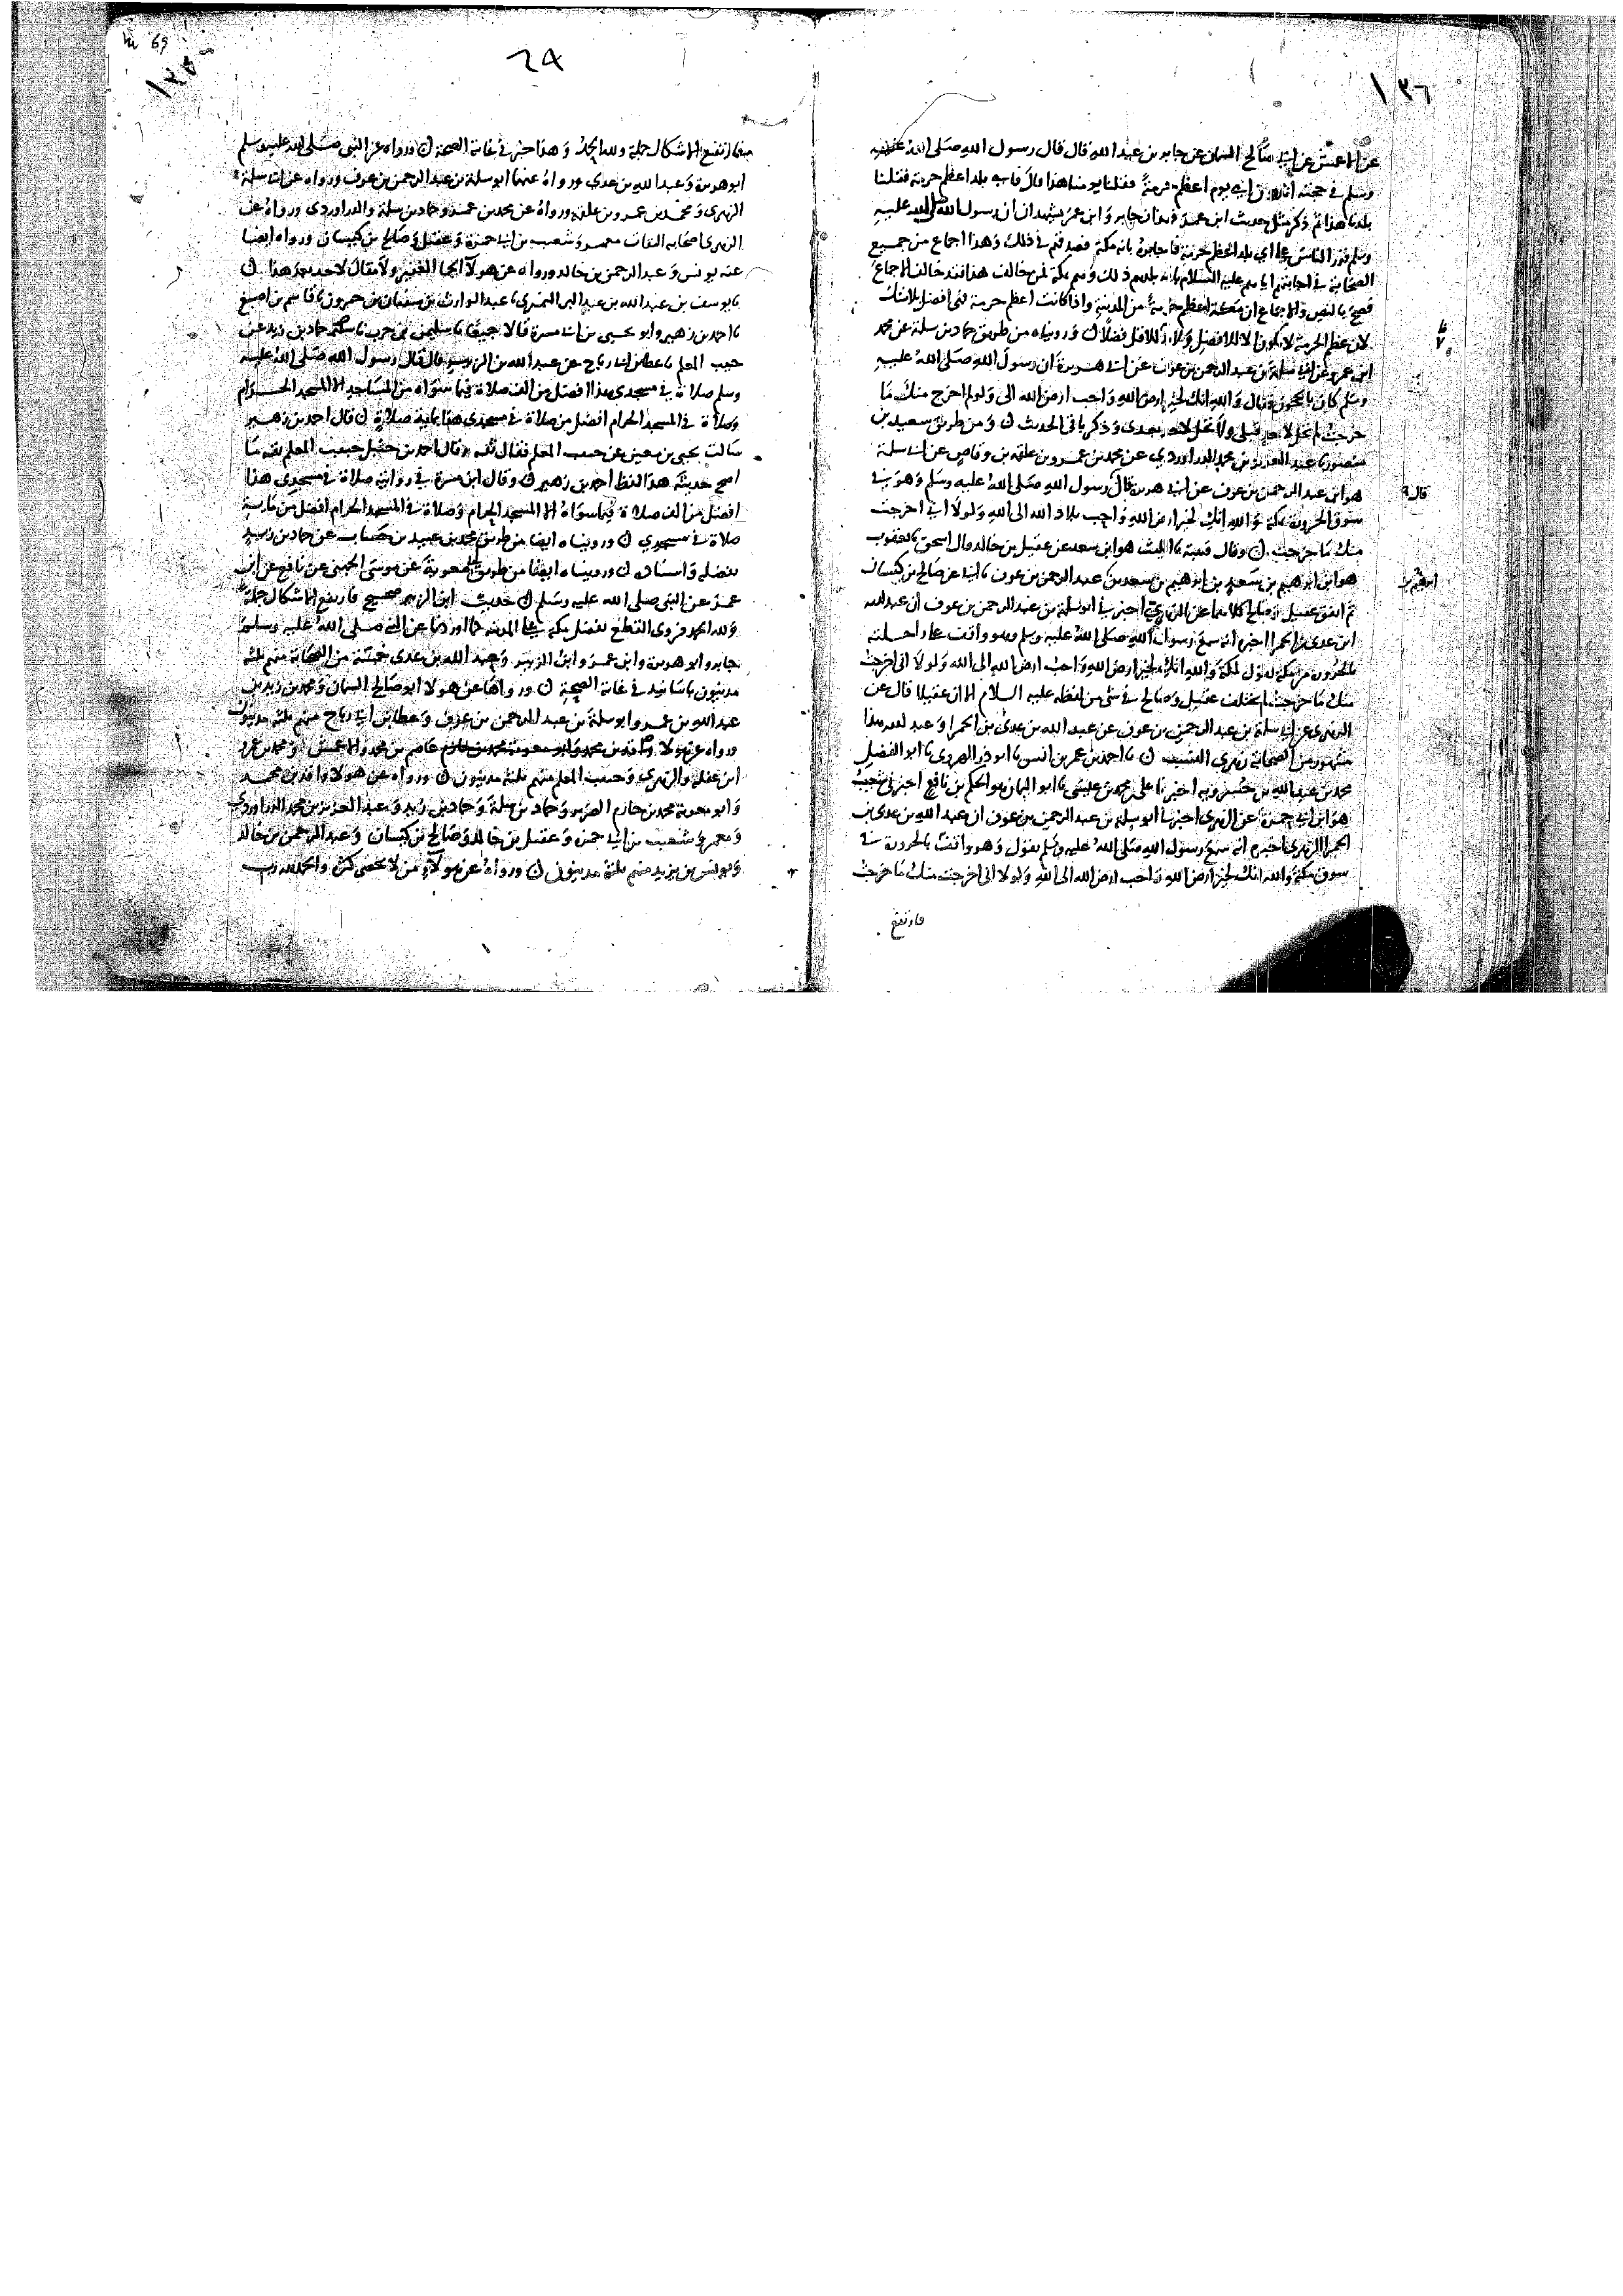 ١٣٦
عن الاعمش عن ابي صالح السمان عن جابر بن عبد الله قال قال رسول الله صلى الله عليه
وسلم في حجته اتدرون اي يوم اعظم حرمة فقلنا يومنا هذا قال فاي بلد اعظم حرمة فقلنا
بلدنا هذا ثم ذكر مثل حديث ابن عمر فهذان جابر وابن عمر يشهدان ان رسول الله صلى الله عليه
وسلم قرر الناس على اي بلد اعظم حرمة فاجابوه بانه مكة فصدقهم في ذلك وهذا اجماع من جميع
الصحابة في اجابتهم اياه عليه السلام بانه بلدهم ذلك وهم بمكة فمن خالف هذا فقد خالف الاجماع
فصح بالنص والاجماع ان مكة اعظم حرمة من المدينة واذا كانت اعظم حرمة فهي افضل بلا شك
لان عظم الحرمة لا يكون الا للافضل ولا بد لا للاقل فضلا ن ورويناه من طريق حماد بن سلمة عن محمد
ابن عمرو عن ابي سلمة بن عبد الرحمن بن عوف عن ابي هريرة ان رسول الله صلى الله عليه
وسلم كان بالحجون فقال والله انك لخير ارض الله واحب ارض الله الى ولو لم اخرج منك ما
خرجت لم تحل لاحد قبلي ولا تحل لاحد بعدي وذكر باقي الحديث ن ومن طريق سعيد بن
منصور نا عبد العزيز بن محمد الدراوردي عن محمد بن عمرو بن علقمة بن وقاص عن ابي سلمة
هو ابن عبد الرحمن بن عوف عن ابي هريرة قال رسول الله صلى الله عليه وسلم وهو في
قال
سوق الحزورة بمكة والله انك لخير ارض الله واحب بلاد الله الى الله ولولا اني اخرجت
منك ما خرجت ن وقال قتيبة نا الليث هو ابن سعد عن عقيل بن خالد وقال اسحق نا يعقوب
هو ابن ابرهيم بن سعد بن ابرهيم بن سعد بن عبد الرحمن بن عوف نا ابي عن صالح بن كيسان
ثم اتفق عقيل وصالح كلاهما عن الزهري اخبرني ابو سلمة بن عبد الرحمن بن عوف ان عبد الله
ابن عدي بن الحمرا اخبره انه سمع رسول الله صلى الله عليه وسلم وهو واقف على راحلته
بالحزورة من مكة يقول لمكة والله انك لخير ارض الله واحب ارض الله الى الله ولولا اني اخرجت
منك ما خرجت لم يختلف عقيل وصالح في شي من لفظه عليه السلام الا ان عقيلا قال عن
الزهري عن ابي سلمة بن عبد الرحمن بن عوف عن عبد الله بن عدي بن الحمرا وعبد الله هذا
مشهور من الصحابة زهري النسب ن نا احمد بن عمر بن انس نا ابو ذر الهروي نا ابو الفضل
محمد بن عبد الله بن خميرويه اخبرنا علي بن محمد بن عيسى نا ابو اليمان هو الحكم بن نافع اخبرني شعيب
هو ابن ابي حمزة عن الزهري اخبرني ابو سلمة بن عبد الرحمن بن عوف ان عبد الله بن عدي بن
الحمرا الزهري اخبره انه سمع رسول الله صلى الله عليه وسلم يقول وهو واقف بالحزورة في
سوق مكة والله انك لخير ارض الله واحب ارض الله الى الله ولولا اني اخرجت منك ما خرجت
فارتفع
24
69
منها ارتفع الاشكال جملة ولله الحمد وهذا خبر في غاية الصحة ن ورواه عن النبي صلى الله عليه وسلم
ابو هريرة وعبد الله بن عدي ورواه عنهما ابو سلمة بن عبد الرحمن بن عوف ورواه عن ابي سلمة
الزهري ومحمد بن عمرو بن علقمة ورواه عن محمد بن عمرو حماد بن سلمة والدراوردي ورواه عن
الزهري اصحابه الثقات معمر وشعيب بن ابي حمزة وعقيل وصالح بن كيسان ورواه ايضا
عنه يونس وعبد الرحمن بن خالد ورواه عن هولاء الجما الغفير ولا مقال لاحد بعد هذا ن
نا يوسف بن عبد الله بن عبد البر النمري نا عبد الوارث بن سفيان بن حبرون نا قاسم بن اصبغ
نا احمد بن زهير وابو يحيى بن ابي مسرة قالا جميعا نا سليمن بن حرب نا حماد بن زيد عن
حبيب المعلم نا عطا بن ابي رباح عن عبد الله بن الزبير قال قال رسول الله صلى الله عليه
وسلم صلاة في مسجدي هذا افضل من الف صلاة فيما سواه من المساجد الا المسجد الحرام
وصلاة في المسجد الحرام افضل من صلاة في مسجدي هذا بماية صلاة ن قال احمد بن زهير
سالت يحيى بن معين عن حبيب المعلم فقال ثقة وقال احمد بن حنبل حبيب المعلم ثقة ما
اصح حديثه هذا لفظ احمد بن زهير ن وقال ابن مسرة في روايته صلاة في مسجدي هذا
افضل من الف صلاة فيما سواه الا المسجد الحرام وصلاة في المسجد الحرام افضل من ماية
صلاة في مسجدي ن ورويناه ايضا من طريق محمد بن عبيد بن حساب عن حماد بن زيد
بنصه واسناده ن ورويناه ايضا من طريق معوية عن موسى الجهني عن نافع عن ابن
عمر عن النبي صلى الله عليه وسلم ن حديث ابن الزبير صحيح فارتفع الاشكال جملة
ولله الحمد فروى القطع بفضل مكة على المدينة كما اوردنا عن النبي صلى الله عليه وسلم
جابر وابو هريرة وابن عمر وابن الزبير وعبد الله بن عدي خمسة من الصحابة منهم ثلثة
مدنيون باسانيد في غاية الصحة ن ورواها عن هولا ابو صالح السمان ومحمد بن زيد بن
عبد الله بن عمر وابو سلمة بن عبد الرحمن بن عوف وعطا بن ابي رباح منهم ثلثة مدنيون
ورواه عن هولا عاصم بن محمد والاعمش ومحمد بن عمرو
ابن علقمة والزهري وحبيب المعلم منهم ثلثة مدنيون ن ورواه عن هولا واقد بن محمد
وابو معوية محمد بن خازم الضرير وحماد بن سلمة وحماد بن زيد وعبد العزيز بن محمد الدراوردي
ومعمر وشعيب بن ابي حمزة وعقيل بن خالد وصالح بن كيسان وعبد الرحمن بن خالد
ويونس بن يزيد منهم ثلثة مدنيون ن ورواه عن هولاء من لا يحصى كثرة والحمد لله رب